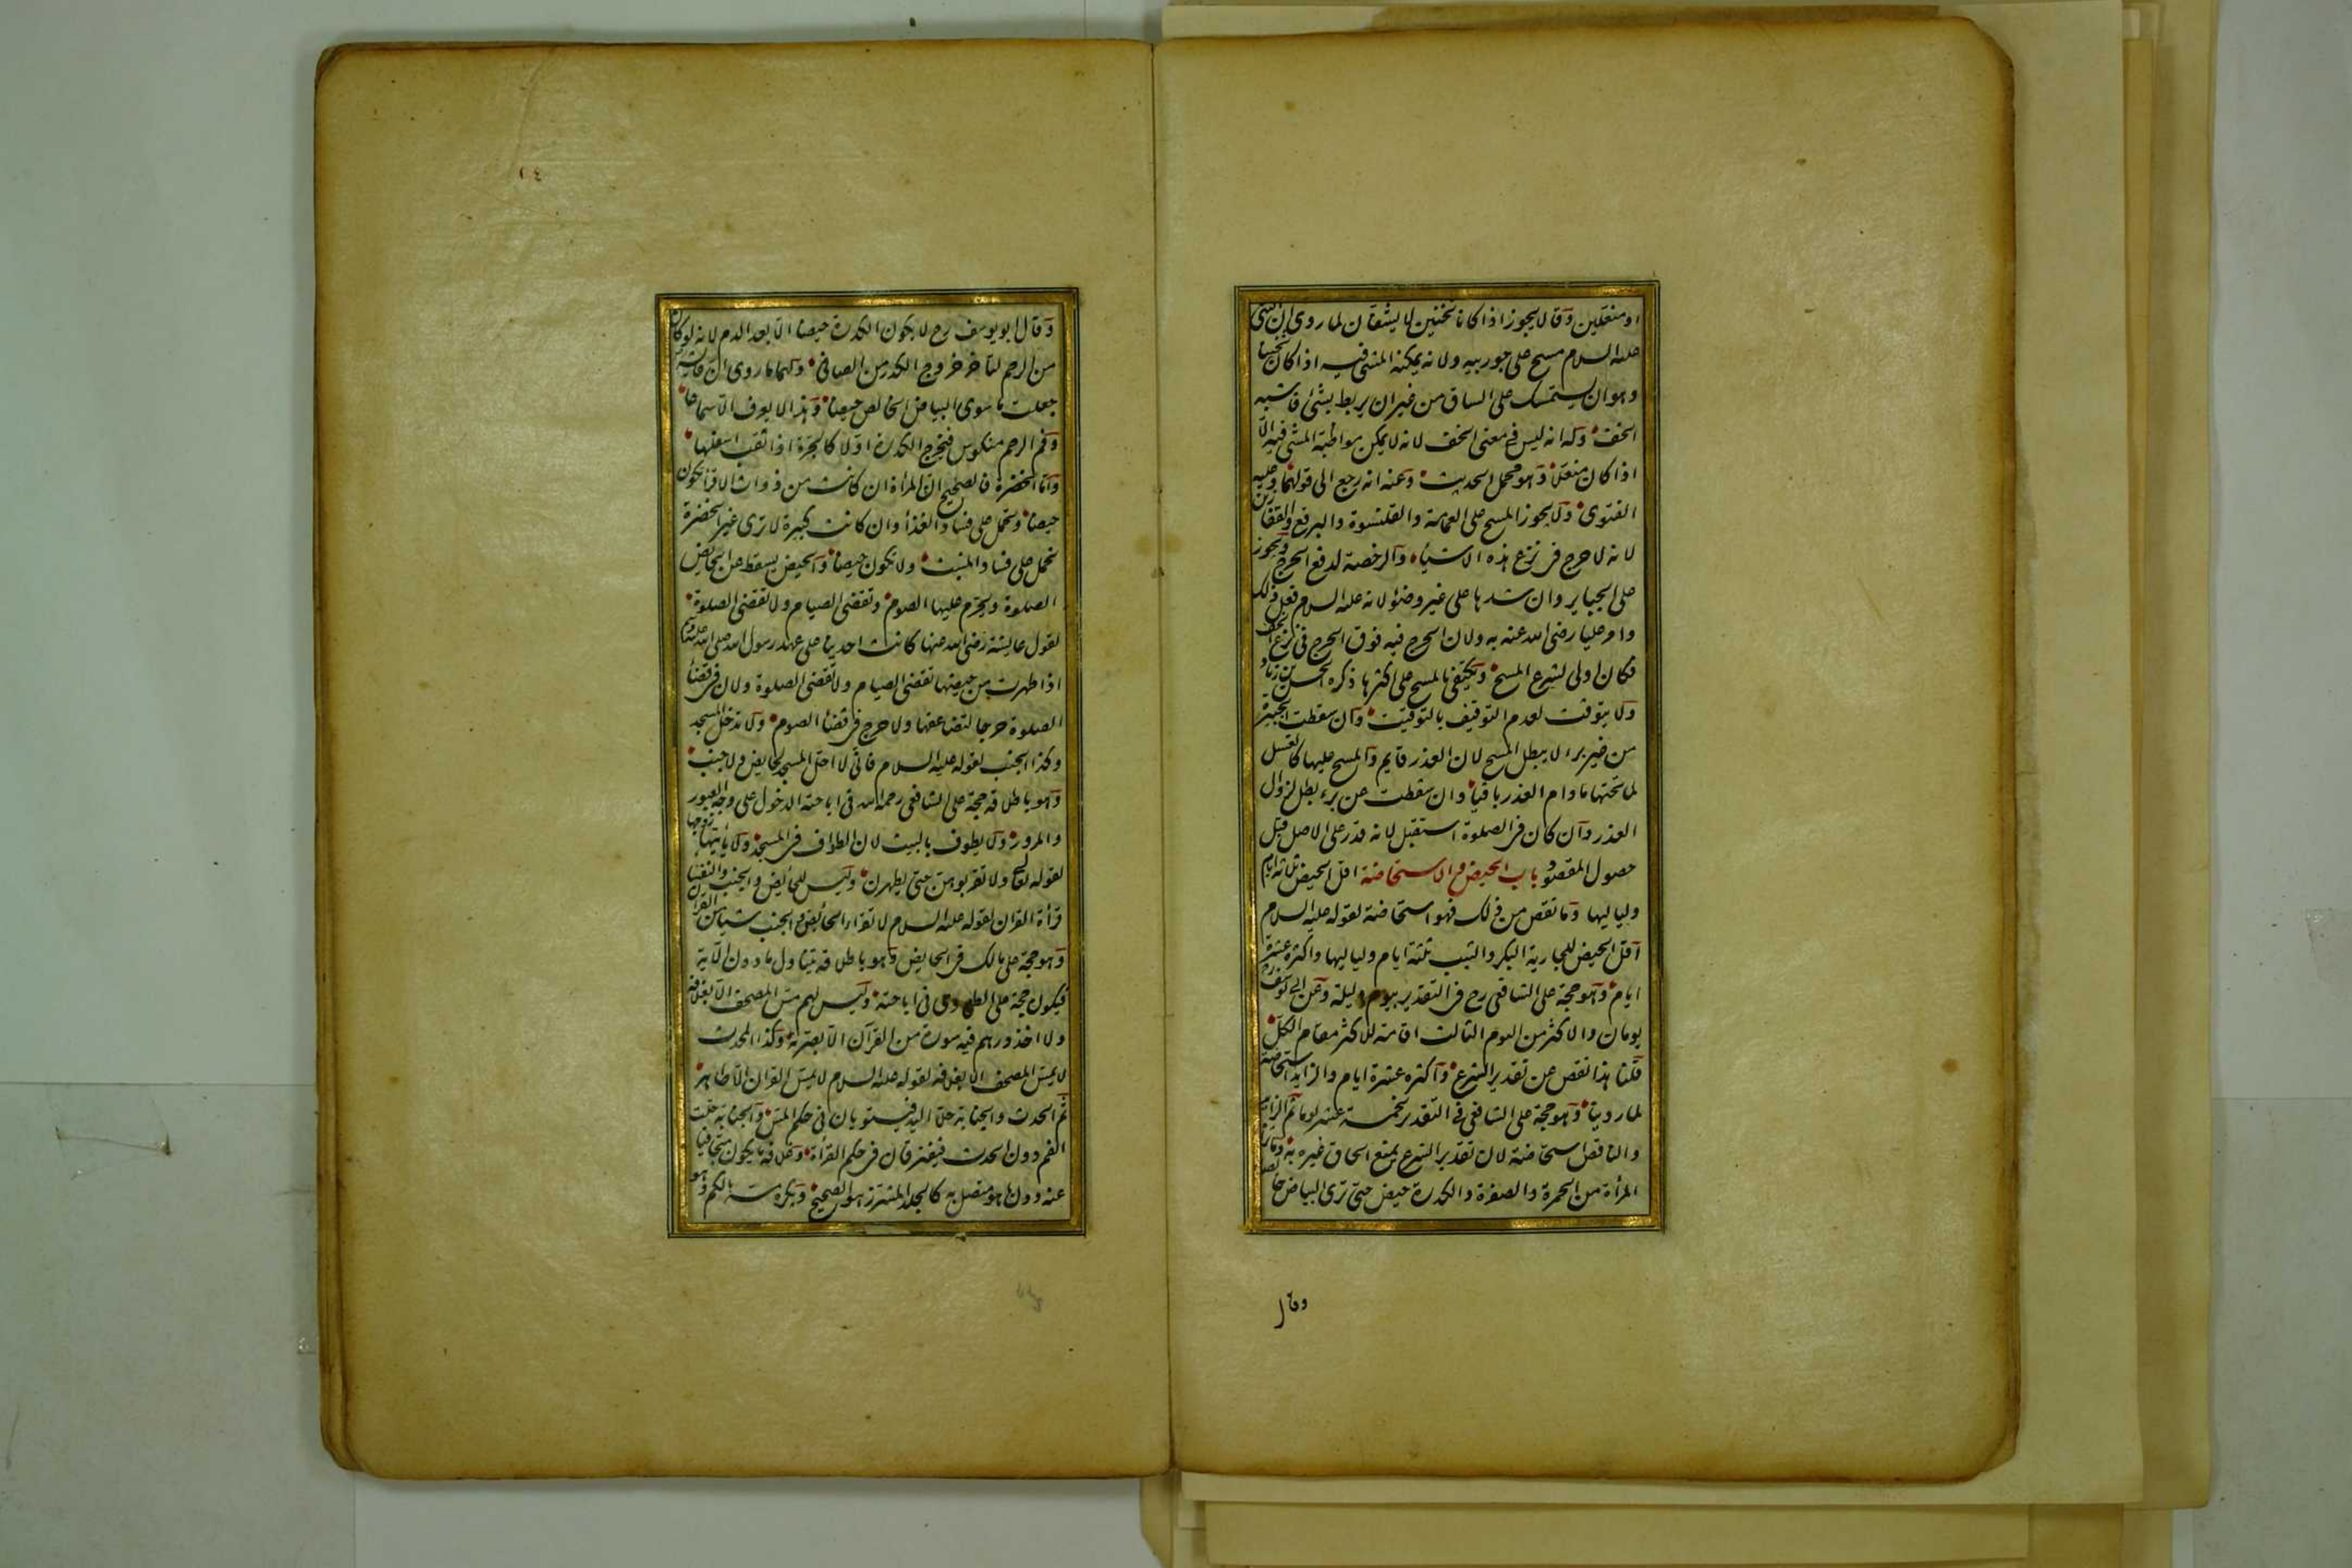 او منعلين وقالا يجوز اذا كانا ثخنين لا يشفان لما روى ان النبي
عليه السلام مسح على جوربيه ولانه يمكنه المشي فيه اذا كان ثخينا
وهو ان يستمسك على الساق من غير ان يربط بشئ فاشبه
الخف وله انه ليس في معنى الخف لانه لا يمكن مواظبة المشي فيه الا
اذا كان منعلا وهو محمل الحديث وعنه انه رجع الى قولهما وعليه
الفتوى ولا يجوز المسح على العمامة والقلنسوة والبرقع والقفازين
لانه لا حرج في نزع هذه الاشياء والرخصة لدفع الحرج ويجوز
على الجباير وان شدها على غير وضوء لانه عليه السلام فعل ذلك
وامر عليا رضى الله عنه به ولان الحرج فيه فوق الحرج في نزع الخف
فكان اولى لشرع المسح ويكتفى بالمسح على اكثرها ذكره الحسن بن زياد
ولا يتوقت لعدم التوقيف بالتوقيت وان سقطت الجبيرة
من غير برء لا يبطل المسح لان العذر قايم والمسح عليها كالغسل
لما تحتها ما دام العذر باقيا وان سقطت عن برء بطل لزوال
العذر وان كان في الصلوة استقبل لانه قدر على الاصل قبل
حصول المقصود باب الحيض والاستحاضة اقل الحيض ثلاثة ايام
ولياليها وما نقص من ذلك فهو استحاضة لقوله عليه السلام
اقل الحيض للجارية البكر والثيب ثلثة ايام ولياليها واكثره عشرة
ايام وهو حجة على الشافعي رح في التقدير بيوم وليلة وعن ابي يوسف
يومان والاكثر من اليوم الثالث اقامة للاكثر مقام الكل
قلنا هذا نقص عن تقدير الشرع واكثره عشرة ايام والزايد استحاضة
لما روينا وهو حجة على الشافعي في التقدير بخمسة عشر يوما ثم الزايد
والناقص استحاضة لان تقدير الشرع يمنع الحاق غيره به وما تراه
المرأة من الحمرة والصفرة والكدرة حيض حتى ترى البياض خالصا
وقال
١٤
وقال ابو يوسف رح لا يكون الكدرة حيضا الا بعد الدم لانه لو كان
من الرحم لتأخر خروج الكدر من الصافي ولهما ما روى ان عايشة
جعلت ما سوى البياض الخالص حيضا وهذا لا يعرف الا سماعا
وفم الرحم منكوس فيخرج الكدرة اولا كالجرة اذا ثقب اسفلها
واما الخضرة فالصحيح ان المرأة ان كانت من ذوات الاقراء يكون
حيضا ويحمل على فساد الغذاء وان كانت كبيرة لا ترى غير الخضرة
تحمل على فساد المنبت ولا تكون حيضا والحيض يسقط عن الحايض
الصلوة ويحرم عليها الصوم وتقضي الصيام ولا تقضي الصلوة
لقول عايشة رضى الله عنها كانت احدينا على عهد رسول الله صلى الله عليه وسلم
اذا طهرت من حيضها تقضي الصيام ولا تقضي الصلوة ولان في قضاء
الصلوة حرجا لتضاعفها ولا حرج في قضاء الصوم ولا تدخل المسجد
وكذا الجنب لقوله عليه السلام فاني لا احل المسجد لحايض ولا جنب
وهو باطلاقه حجة على الشافعي رحمه الله في اباحته الدخول على وجه العبور
والمرور ولا يطوف بالبيت لان الطواف في المسجد ولا يأتيها زوجها
لقوله تعالى ولا تقربوهن حتى يطهرن وليس للحائض والجنب والنفساء
قراءة القران لقوله عليه السلام لا تقرأ الحائض والجنب شيئا من القران
وهو حجة على مالك في الحايض وهو باطلاقه يتناول ما دون الاية
فيكون حجة على الطحاوى في اباحته وليس لهم مس المصحف الا بغلافه
ولا اخذ درهم فيه سورة من القرآن الا بصرته وكذا المحدث
لا يمس المصحف الا بغلافه لقوله عليه السلام لا يمس القران الا طاهر
ثم الحدث والجنابة حلا اليد فيستويان في حكم المس والجنابة حلت
الفم دون الحدث فيفترقان في حكم القراءة وغلافه ما يكون متجافيا
عنه دون ما هو متصل به كالجلد المشرز هو الصحيح ويكره مسه بالكم وهو